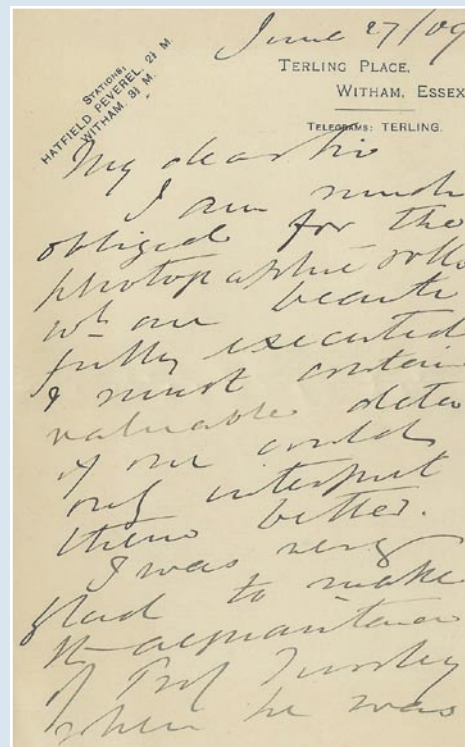 June 27/09
STATIONS:
HATFIELD PEVEREL. 2½ M.
WITHAM. 3½ M.
TERLING PLACE,
WITHAM, ESSEX
TELEGRAMS: TERLING.
My dear Sir
I am much
obliged for the
photographic rolls
wh are beauti
fully executed
& must contain
valuable data
if one could
only interpret
them better.
I was very
glad to make
the acquaintance
of Prof
when he was